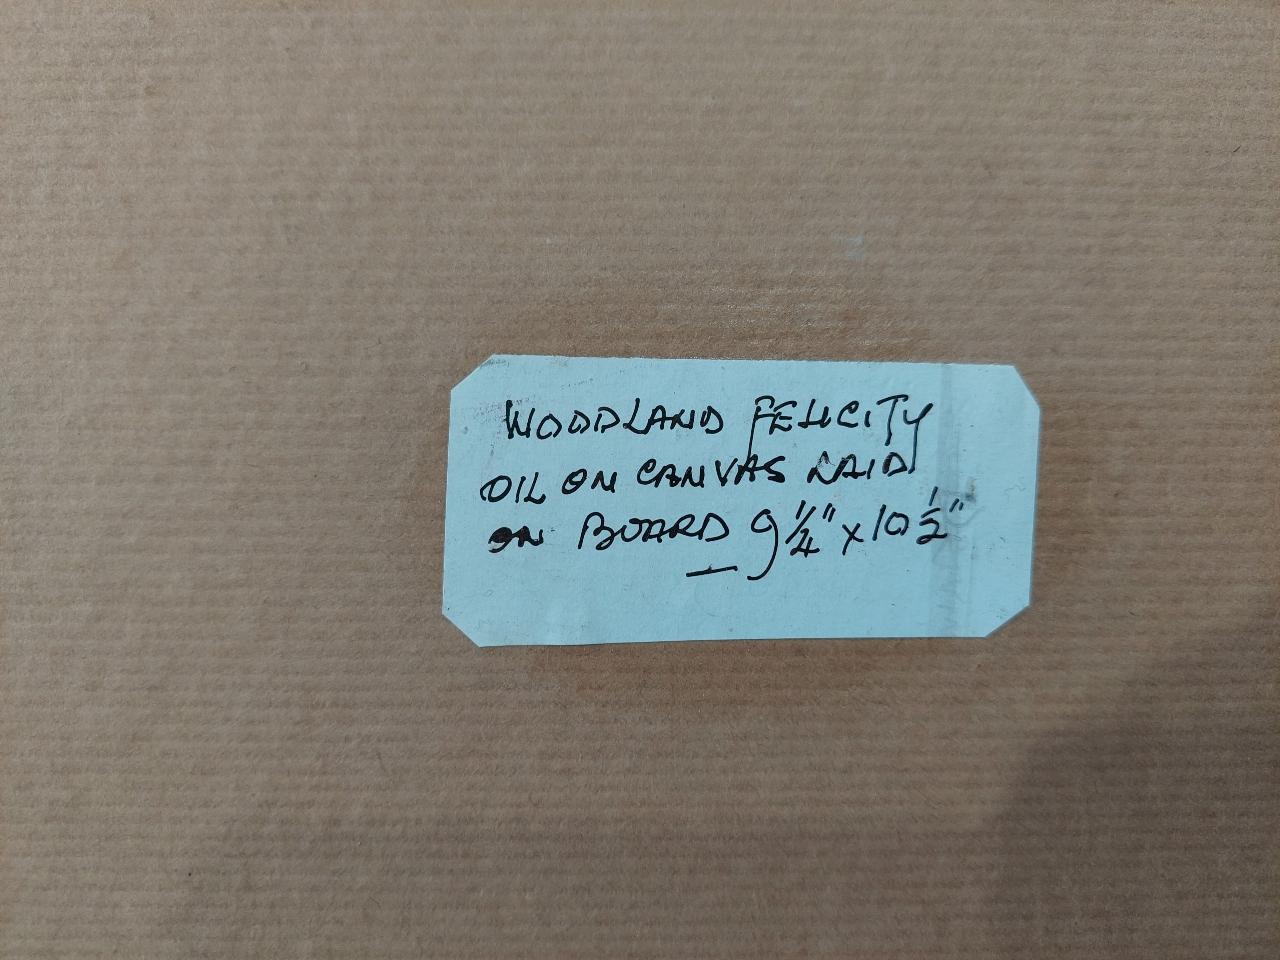 WOODLAND FELICITY
OIL ON CANVAS LAID
ON BOARD 9 1/4" x 10 1/2"